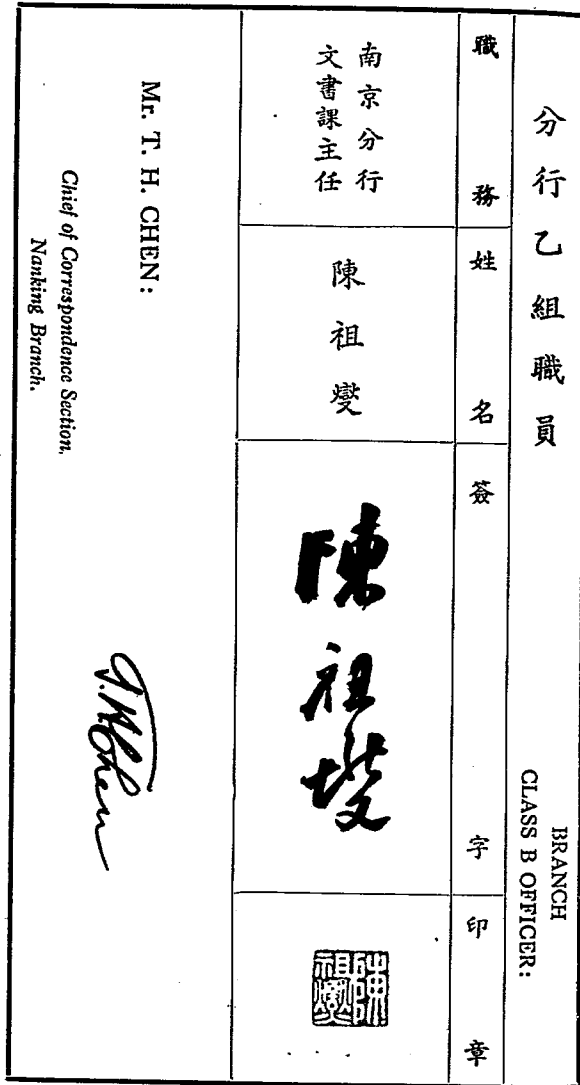 分行乙組職員
BRANCH
CLASS B OFFICER:
職務
姓名
簽字
印章
南京分行
文書課主任
陳祖燮
陳祖燮
陳祖燮
Mr. T. H. CHEN:
Chief of Correspondence Section,
Nanking Branch.
T. H. Chen